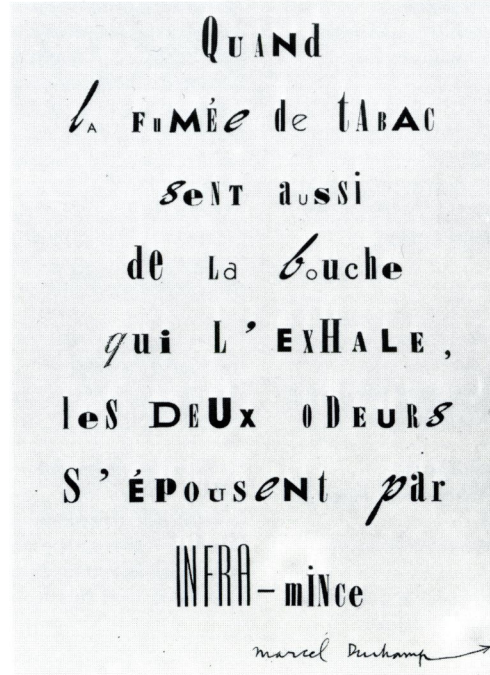 QUANd
LA FuMÉe de tABAC
seNT aussi
de La bouche
qui L'EXHALE,
les DEUx ODEURs
S'ÉPousENt par
INFRA-miNce
marcel Duchamp